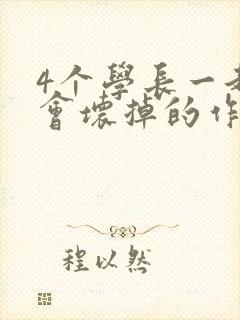 4个學長一
會壞掉的作
程以然